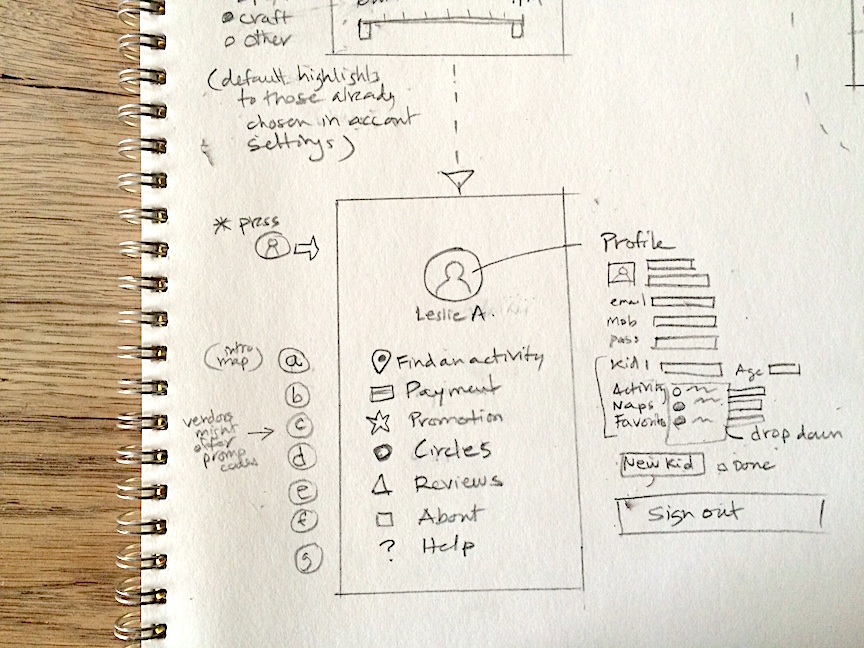 craft
other
(default highlights
to those already
chosen in accont
settings)
* press
Profile
Leslie A.
email
Mob
pass
(intro
map)
a
Find an activity
Kid 1
Age
b
Payment
Activity
Naps
Favorite
vendors
might
offer
promo
codes
c
Promotion
drop down
d
Circles
New Kid
Done
e
Reviews
f
About
Sign out
g
? Help